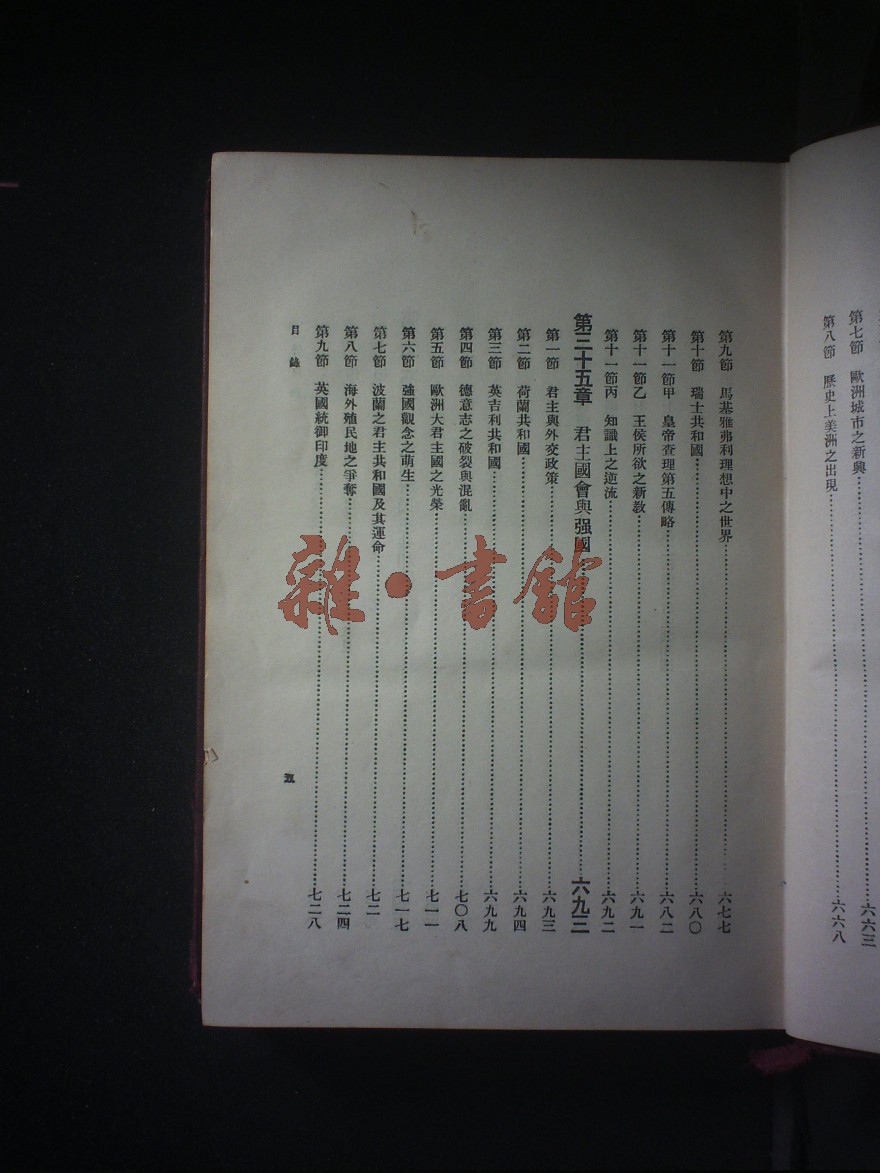 第七節　歐洲城市之新興……六六三
第八節　歷史上美洲之出現……六六八
第九節　馬基雅弗利理想中之世界……六七七
第十節　瑞士共和國……六八〇
第十一節甲　皇帝查理第五傳略……六八二
第十一節乙　王侯所欲之新教……六九一
第十一節丙　知識上之逆流……六九二
第三十五章　君主國會與强國……六九三
第一節　君主與外交政策……六九三
第二節　荷蘭共和國……六九四
第三節　英吉利共和國……六九九
第四節　德意志之破裂與混亂……七〇八
第五節　歐洲大君主國之光榮……七一一
第六節　強國觀念之萌生……七一七
第七節　波蘭之君主共和國及其運命……七二
第八節　海外殖民地之爭奪……七二四
第九節　英國統御印度……七二八
目錄
五
雜·書館